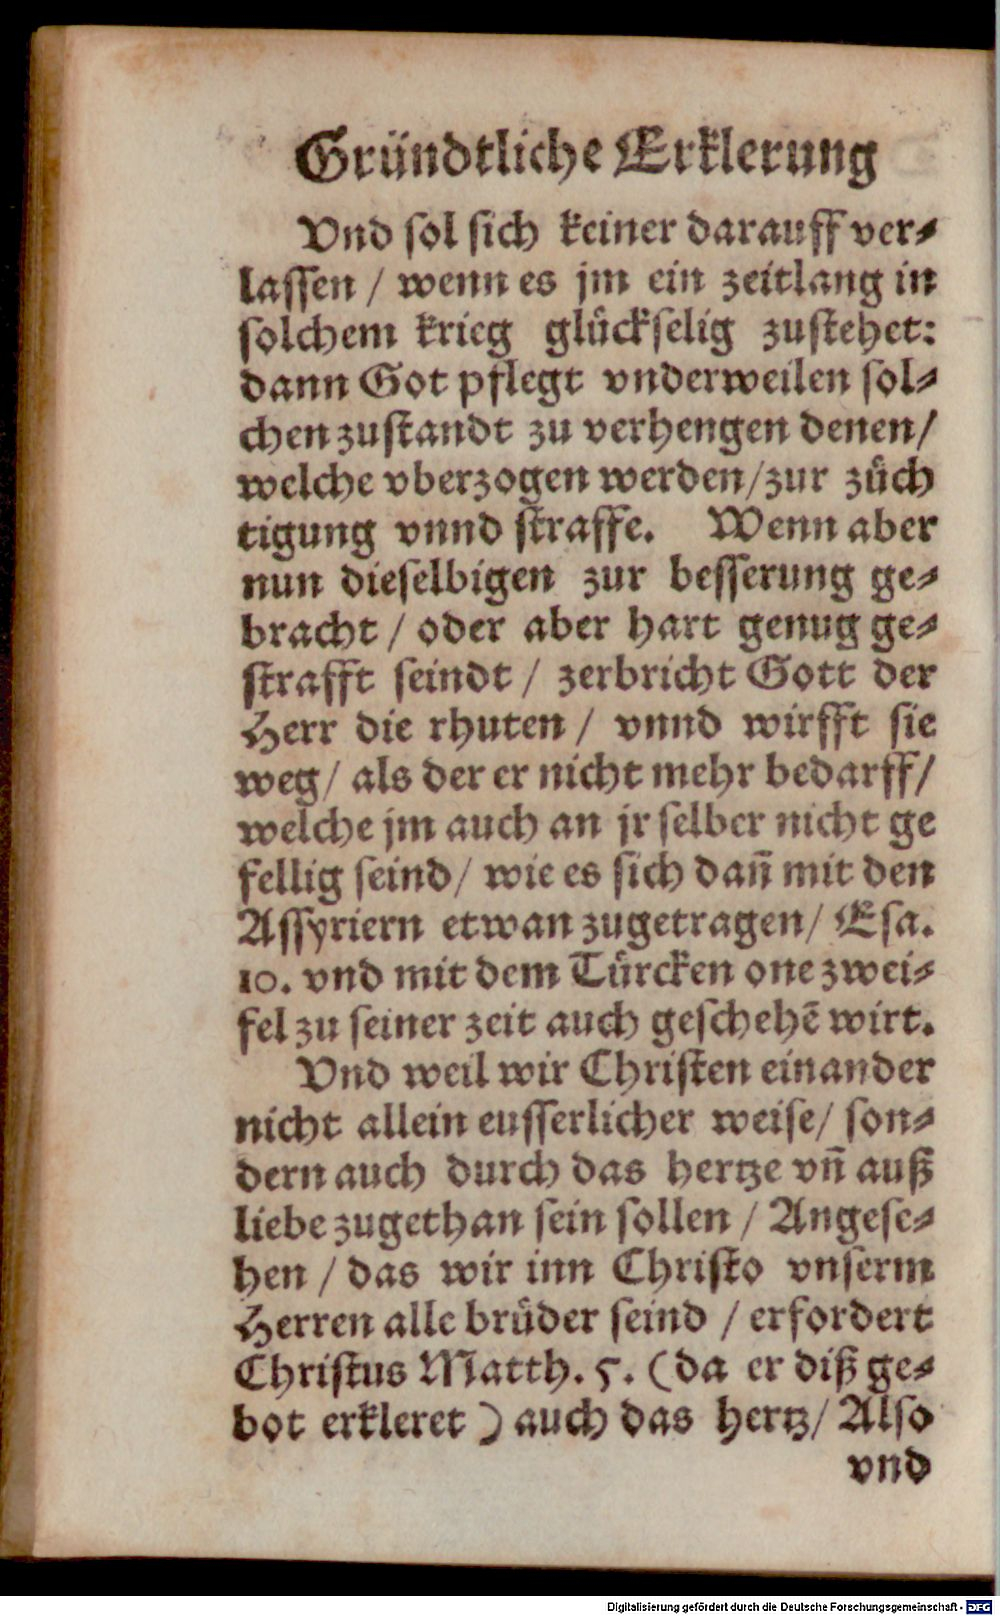 Gründtliche Erklerung
Vnd sol sich keiner darauff ver⸗
lassen / wenn es jm ein zeitlang in
solchem krieg glückselig zustehet:
dann Got pflegt vnderweilen sol⸗
chen zustandt zu verhengen denen/
welche vberzogen werden/zur züch
tigung vnnd straffe. Wenn aber
nun dieselbigen zur besserung ge⸗
bracht / oder aber hart genug ge⸗
strafft seindt / zerbricht Gott der
Herr die rhuten / vnnd wirfft sie
weg/ als der er nicht mehr bedarff/
welche jm auch an jr selber nicht ge
fellig seind/ wie es sich dañ mit den
Assyriern etwan zugetragen/ Esa.
10. vnd mit dem Türcken one zwei⸗
fel zu seiner zeit auch geschehē wirt.
Vnd weil wir Christen einander
nicht allein eusserlicher weise/ son⸗
dern auch durch das hertze vñ auß
liebe zugethan sein sollen / Angese⸗
hen / das wir inn Christo vnserm
Herren alle brüder seind / erfordert
Christus Matth. 5. (da er diß ge⸗
bot erkleret) auch das hertz/ Also
vnd
Digitalisierung gefördert durch die Deutsche Forschungsgemeinschaft - DFG